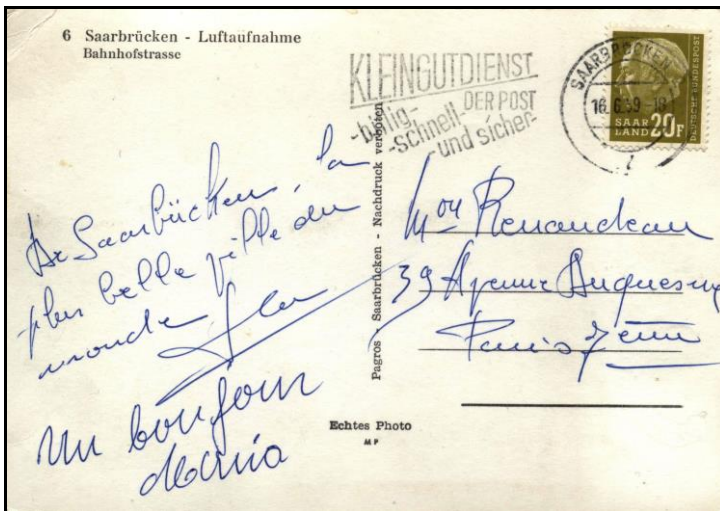 6 Saarbrücken - Luftaufnahme
Bahnhofstrasse
KLEINGUTDIENST
DER POST
-billig,-
-schnell-
-und sicher-
SAARBRÜCKEN
16.6.59-18
SAAR
LAND 20F
DEUTSCHE BUNDESPOST
De Saarbücken, la
plus belle ville du
monde
Un bonjour
Pagros - Saarbrücken - Nachdruck verboten
Renaudeau
39 Avenue Duquesne
Paris 7eme
Echtes Photo
MP